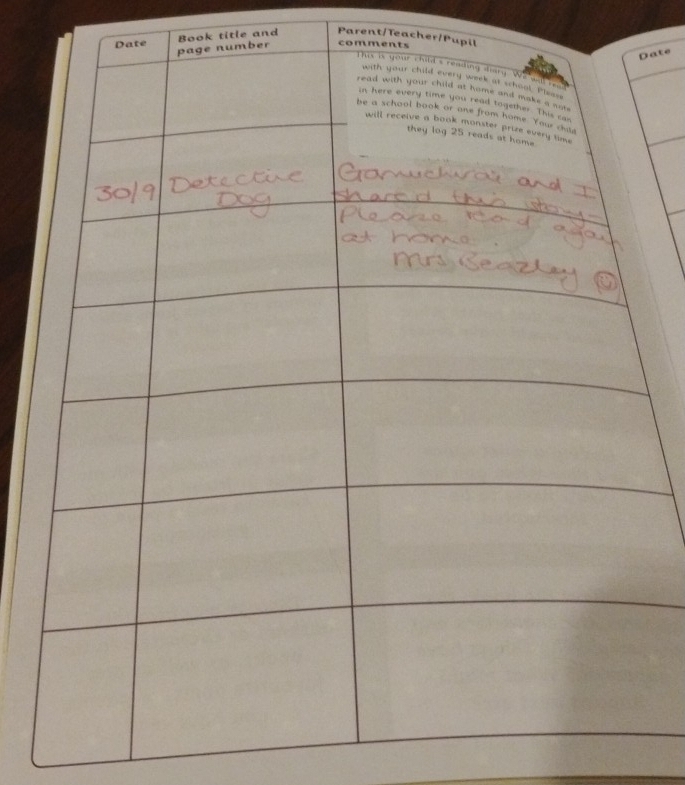 Date
Book title and
page number
Parent/Teacher/Pupil
comments
This is your child's reading diary. We will read
with your child every week at school. Please
read with your child at home and make a note
in here every time you read together. This can
be a school book or one from home. Your child
will receive a book monster prize every time
they log 25 reads at home.
30/9
Detective
Dog
and I
shared this story-
Please read again
at home.
Mrs Beazley
Date